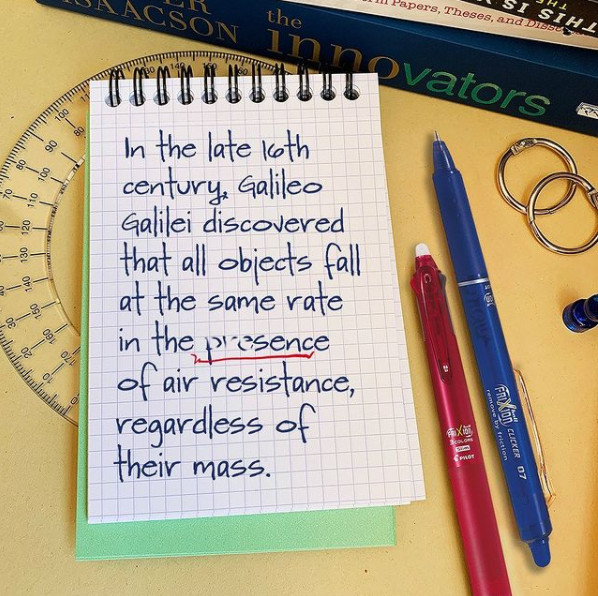 ISAACSON
the
innovators
rm Papers, Theses, and Disse
THIS IS
THE
In the late 16th
century, Galileo
Galilei discovered
that all objects fall
at the same rate
in the presence
of air resistance,
regardless of
their mass.
FRIXION
PILOT
FRIXION ball
CLICKER 07
remove by friction